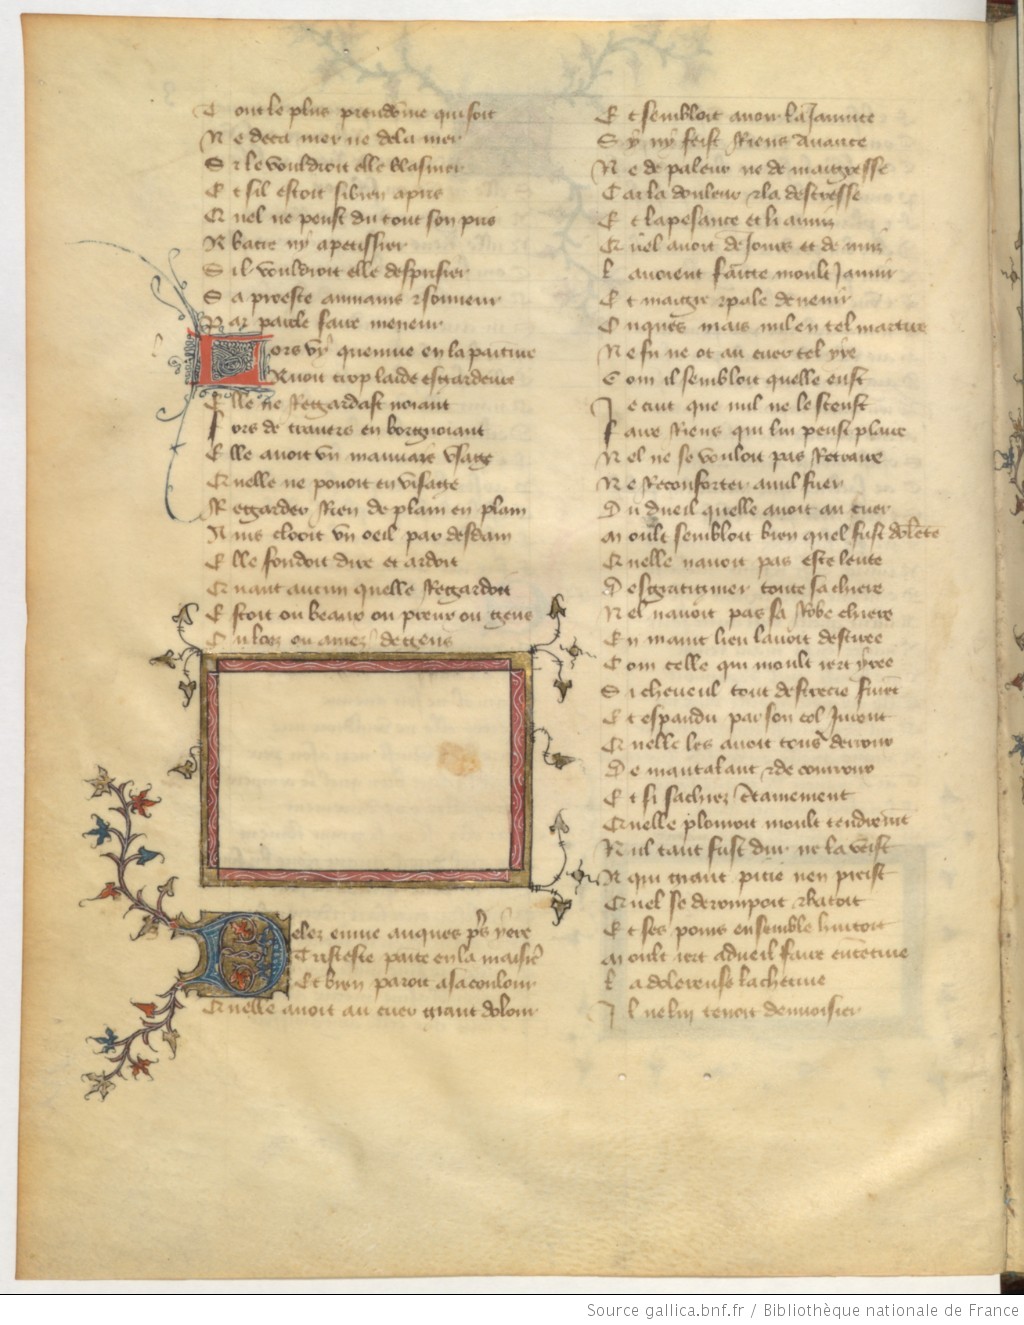 Tout le plus preudome qui soit
Ne deca mer ne dela mer
Si le vouldroit elle blasmer
Et sil estoit si bien apris
Quel ne peust du tout son pris
Abatre ny apetissier
Si vouldroit elle desprisier
Sa proeste aumains et sonneur
Par parole faire meneur
Lors vy quenuie en la painture
Auoit trop laide esgardeure
Elle ne Regardast noiant
fors de trauers en borgnoiant
Elle auoit vn mauuais vsage
Quelle ne pouoit en visage
Regarder Rien de plain en plain
Ains clooit vn oeil par desdain
Elle fondoit dire et ardoit
Quant aucun quelle Regardoit
Estoit ou beaux ou preux ou gens
ou amez de gens
Delez enuie auques ps yere
Tristesse painte en la maisiere
Et bien paroit a sa coulour
Quelle auoit au cuer grant dolour
Et sembloit auoir la Jaunice
Sy ny feist Riens auarice
Ne de paleur ne de maigresse
Car la douleur et la destresse
Et la pesance et li anuis
Quel auoit de Jours et de nuis
Lauoient faicte moult Jaunir
Et maigre et pale deuenir
Onques mais nul en tel martire
Ne fu ne ot au cuer tel yre
Com il sembloit quelle eust
Je cuit que nul ne le sceust
faire Riens qui lui peust plaire
Nel ne se vouloit pas Retraire
Ne Reconforter a nul fuer
Du dueil quelle auoit au cuer
Moult sembloit bien quel fust dolente
Quelle nauoit pas este lente
Desgratigner toute sa chiere
Nel nauoit pas sa Robe chiere
En maint lieu lauoit desciree
Com celle qui moult iert yree
Si cheueul tout destrecie furent
Et espandu par son col Jurent
Quelle les auoit tous derrous
De mautalant et de courrous
Et si sachiez certainement
Quelle plouroit moult tendrement
Nul tant fust dur ne la veist
A qui grant pitie nen preist
Quel se derompoit et batoit
Et ses poins ensemble hurtoit
Moult iert a dueil faire ententiue
La dolereuse la chetiue
Il ne lui tenoit denuoisier
Source gallica.bnf.fr / Bibliothèque nationale de France